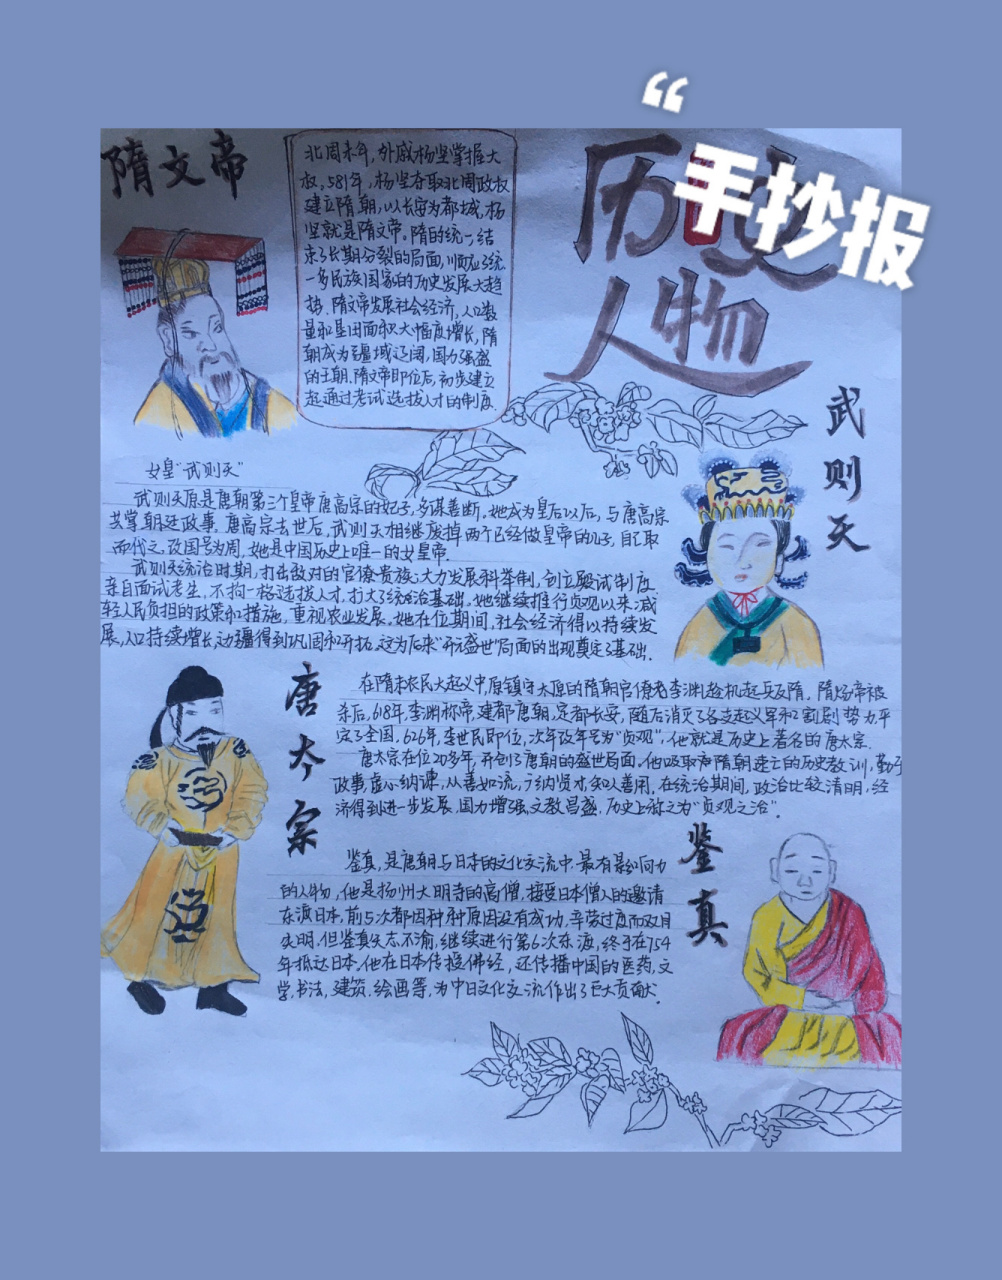 “
手抄报
历史
人物
隋文帝
北周末年，外戚杨坚掌握大
权。581年，杨坚夺取北周政权
建立隋朝，以长安为都城，杨
坚就是隋文帝。隋的统一结
束了长期分裂的局面，顺应了统
一多民族国家的历史发展大趋
势。隋文帝发展社会经济，人口数
量和垦田面积大幅度增长，隋
朝成为疆域辽阔，国力强盛
的王朝。隋文帝即位后，初步建立
起通过考试选拔人才的制度
武则天
女皇“武则天”
武则天原是唐朝第三个皇帝唐高宗的妃子，多谋善断。她成为皇后以后，与唐高宗
共掌朝廷政事。唐高宗去世后，武则天相继废掉两个已经做皇帝的儿子，自己取
而代之，改国号为周，她是中国历史上唯一的女皇帝．
武则天统治时期，打击敌对的官僚贵族；大力发展科举制，创立殿试制度
亲自面试考生，不拘一格选拔人才，扩大了统治基础。她继续推行贞观以来，减
轻人民负担的政策和措施，重视农业发展。她在位期间，社会经济得以持续发
展，人口持续增长，边疆得到巩固和开拓，这为后来“开元盛世”局面的出现奠定了基础．
唐太宗
在隋末农民大起义中，原镇守太原的隋朝官僚老李渊趁机起兵反隋。隋炀帝被
杀后，618年，李渊称帝，建都唐朝，定都长安，随后消灭了各支起义军和割剧势力，平
定了全国，626年，李世民即位，次年改年号为“贞观”，他就是历史上著名的唐太宗．
唐太宗在位20多年，开创了唐朝的盛世局面。他吸取隋朝速亡的历史教训，勤于
政事，虚心纳谏，从善如流，广纳贤才，知人善用．在统治期间，政治比较清明，经
济得到进一步发展，国力增强，文教昌盛，历史上称之为“贞观之治”．
鉴真
鉴真，是唐朝与日本的文化交流中最有影响力
的人物，他是扬州大明寺的高僧，接受日本僧人的邀请
东渡日本，前5次都因种种原因没有成功，辛劳过度而双目
失明．但鉴真矢志不渝，继续进行第6次东渡，终于在754
年抵达日本．他在日本传授佛经，还传播中国的医药，文
学，书法，建筑，绘画等，为中日文化交流作出了巨大贡献．